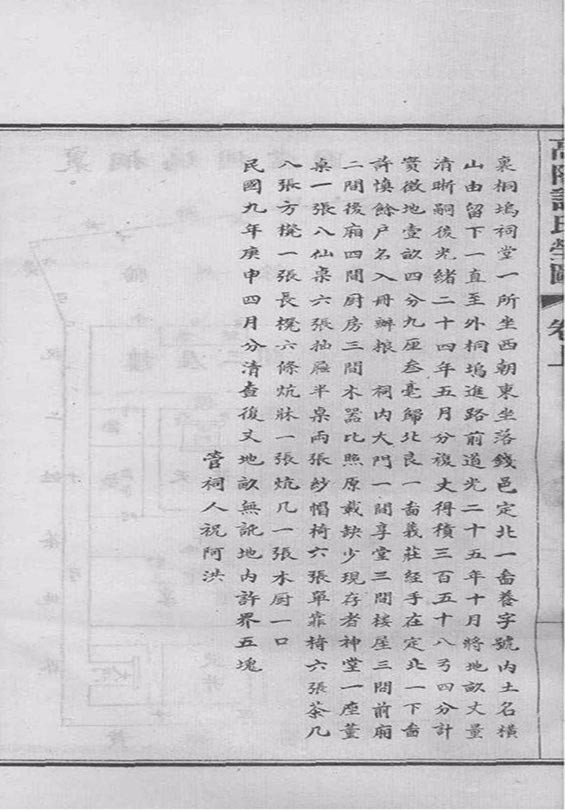 高陽許氏塋圖 卷上
裏桐塢祠堂一所坐西朝東坐落錢邑定北一啚巻字號內土名橫
山由留下一直至外桐塢進路前道光二十五年十月將地畝丈量
清晰嗣後光緒二十四年五月分複丈得積三百五十八弓四分計
實徵地壹畝四分九厘叁毫歸北良一啚義莊經手在定北一下啚
許慎餘户名入冊辦粮 祠內大門一間享堂三間楼屋三間前廂
二間後廂四間厨房三間木器比照原載缺少現存者神堂一座董
桌一張八仙桌六張抽屜半桌兩張紗帽椅六張單靠椅六張茶几
八張方櫈一張長櫈六條炕牀一張炕几一張木厨一口
民國九年庚申四月分清查復丈地畝無訛地內許界五塊
管祠人祝阿洪